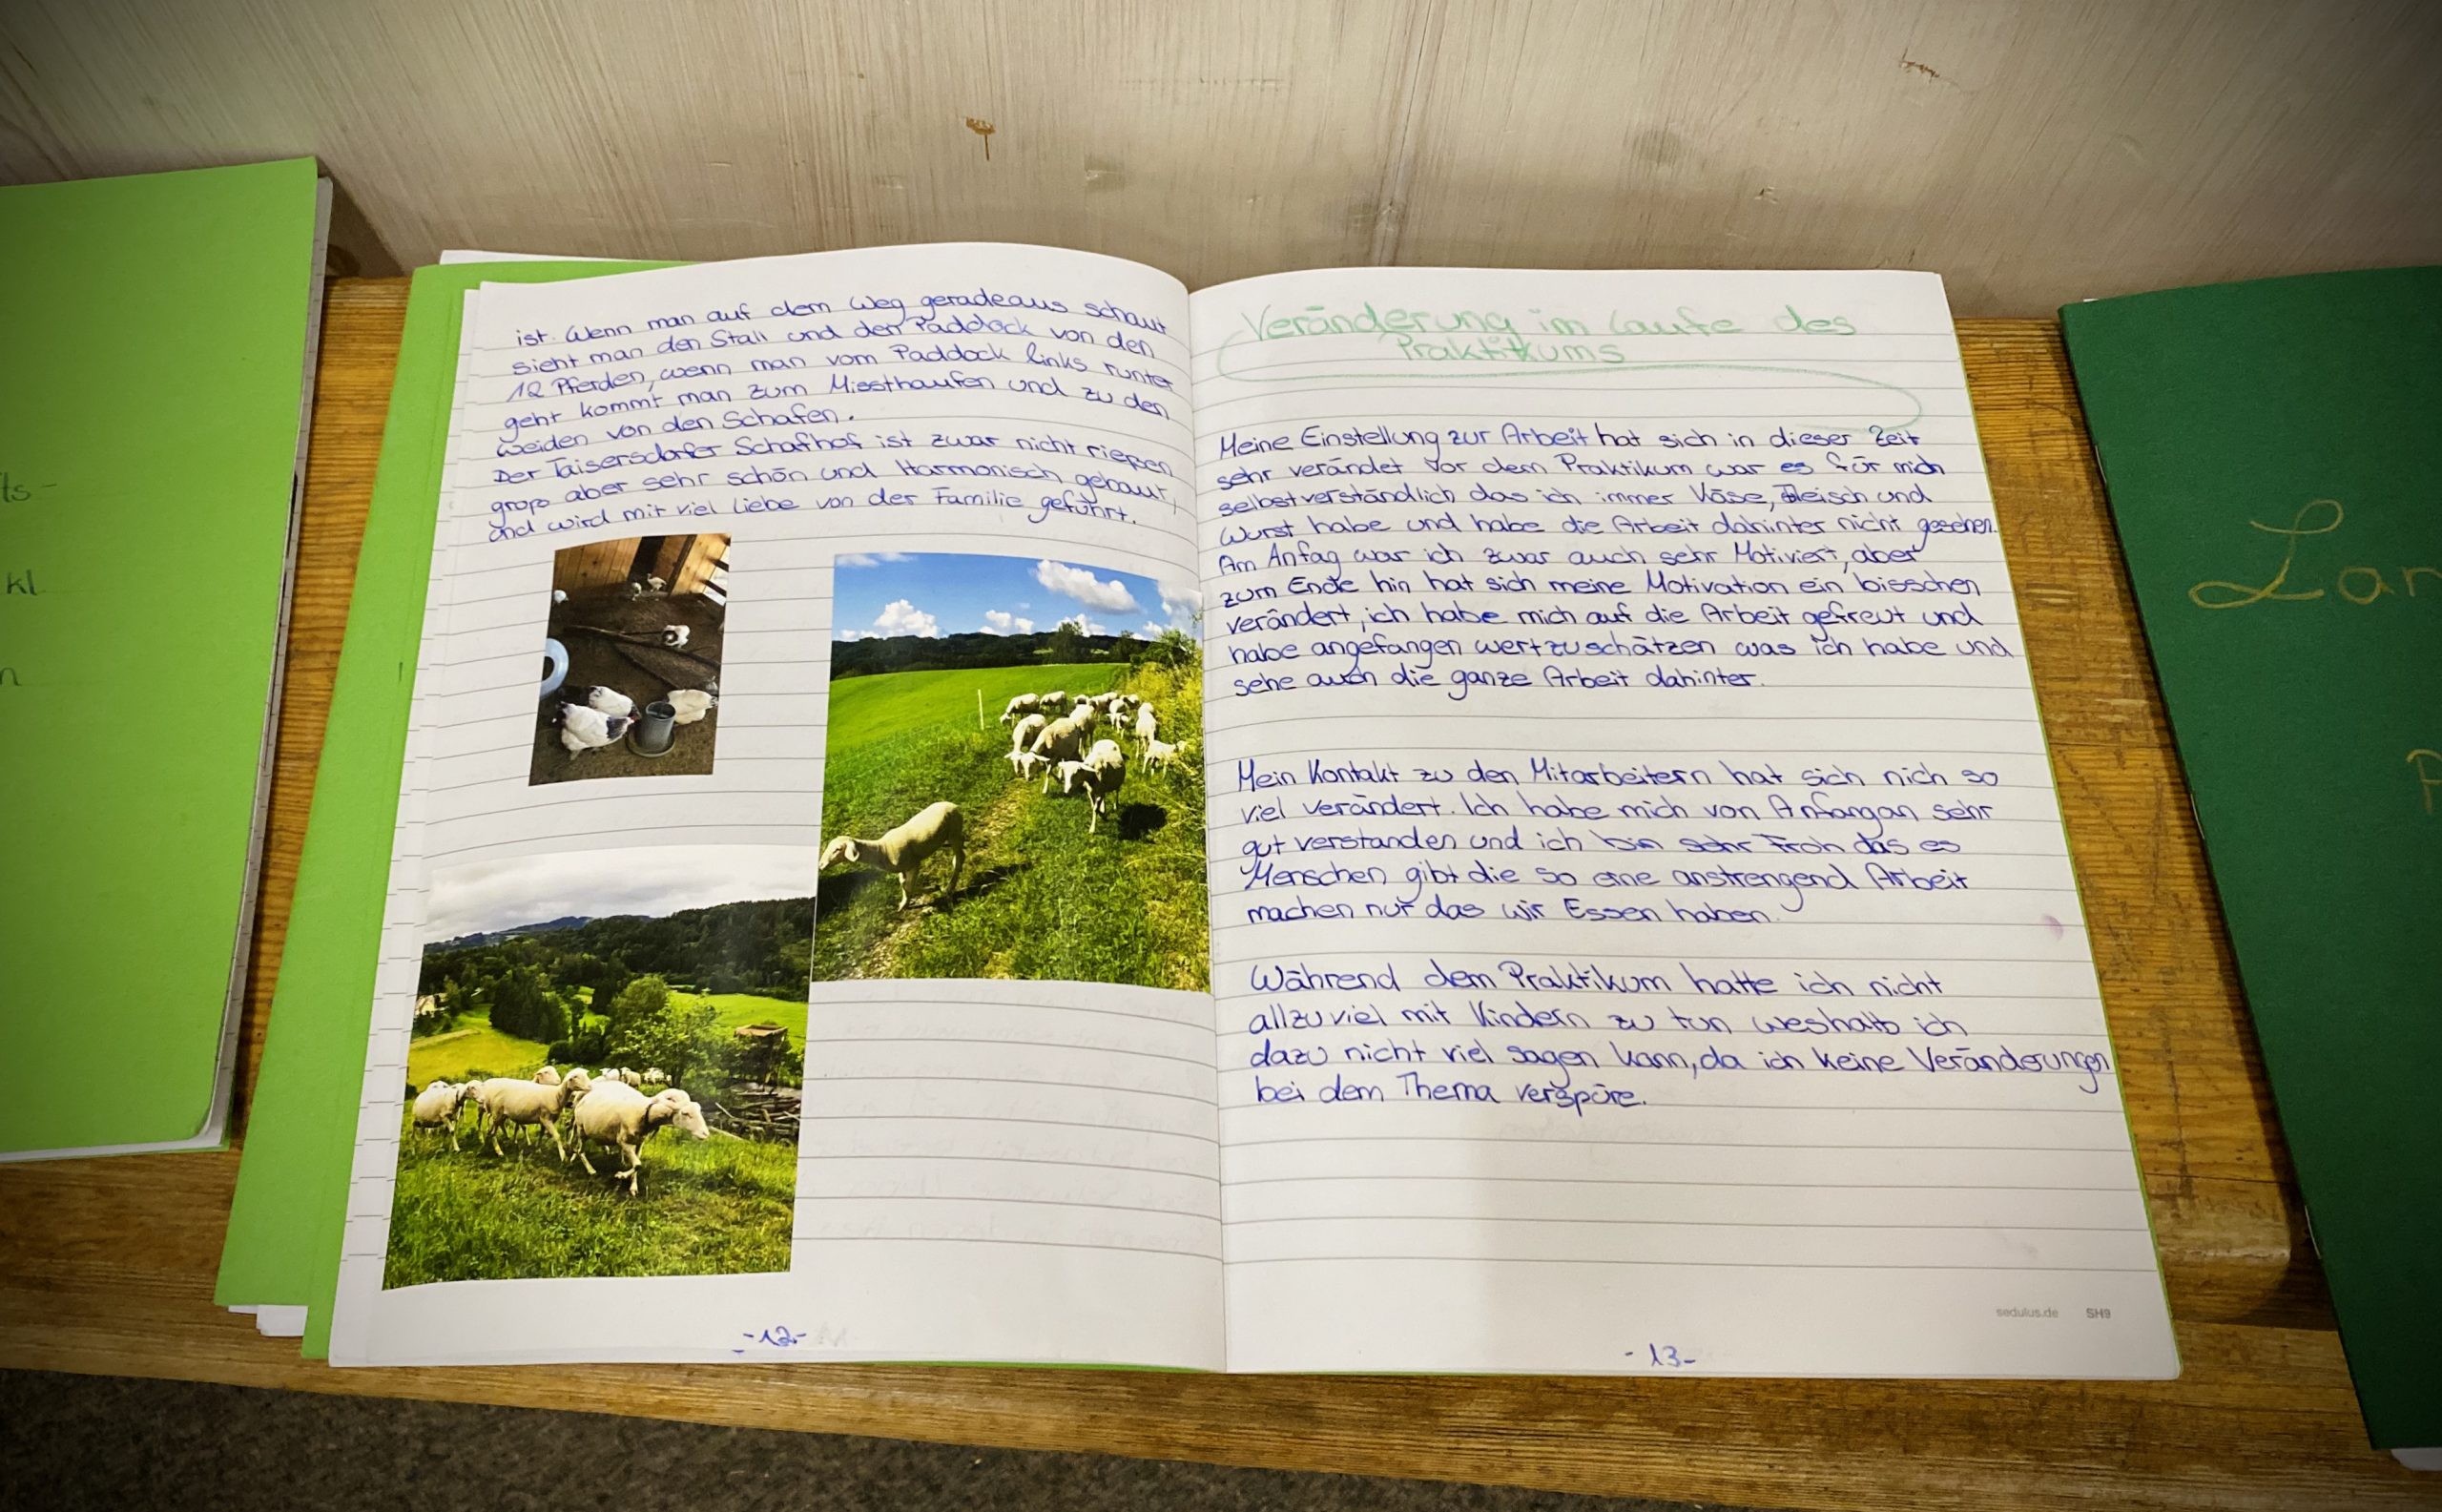 ist. Wenn man auf dem Weg geradeaus schaut
sieht man den Stall und den Paddock von den
12 Pferden, wenn man vom Paddock links runter
geht kommt man zum Missthaufen und zu den
weiden von den Schafen.
Der Taisersdorfer Schafhof ist zwar nicht rießen
groß aber sehr schön und Harmonisch gebaut,
und wird mit viel Liebe von der Familie geführt.
-12-
Veränderung im laufe des
Praktikums
Meine Einstellung zur Arbeit hat sich in dieser Zeit
sehr verändet vor dem Praktikum war es für mich
selbstverständlich das ich immer Käse, Fleisch und
Wurst habe und habe die Arbeit dahinter nicht gesehen.
Am Anfag war ich zwar auch sehr Motiviert, aber
zum Ende hin hat sich meine Motivation ein bisschen
verändert, ich habe mich auf die Arbeit gefreut und
habe angefangen wertzuschätzen was ich habe und
sehe auch die ganze Arbeit dahinter.
Mein Kontakt zu den Mitarbeitern hat sich nich so
viel verändert. Ich habe mich von Anfangan sehr
gut verstanden und ich bin sehr Froh das es
Menschen gibt die so eine anstrengend Arbeit
machen nur das wir Essen haben.
Während dem Praktikum hatte ich nicht
allzuviel mit Kindern zu tun weshalb ich
dazu nicht viel sagen kann, da ich keine Veränderungen
bei dem Thema verspüre.
sedulus.de SH9
-13-
ts-
kl.
n
Lan
P